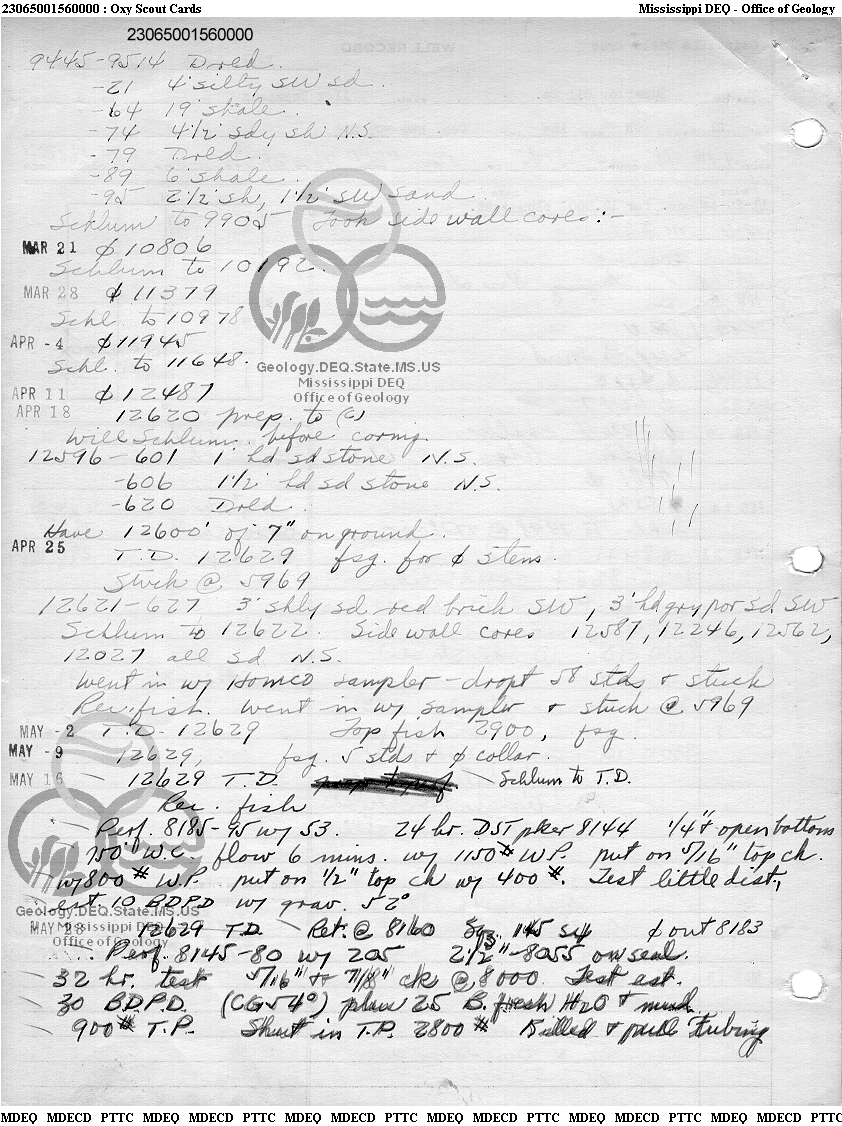 23065001560000 : Oxy Scout Cards
Mississippi DEQ - Office of Geology
23065001560000
9445-9514 Drld.
-21 4' silty SW sd.
-64 19' shale.
-74 4 1/2' sdy sh N.S.
-79 Drld.
-89 6' shale.
-95 2 1/2' sh, 1 1/2' SW sand
Schlum to 9905 Took side wall cores:-
MAR 21 ϕ 10806
Schlum to 10192.
MAR 28 ϕ 11379
Schl. to 10978
APR -4 ϕ 11945
Schl. to 11648.
Geologogy.DEQ.State.MS.US
Mississippi DEQ
Office of Geology
APR 11 ϕ 12487
APR 18 12620 prep. to (C)
Will Schlum. before coring.
12596-601 1' hd sd stone N.S.
-606 1 1/2' hd sd stone N.S.
-620 Drld.
Have 12600' of 7" on ground.
APR 25 T.D. 12629 fsg. for ϕ stem
Stuck @ 5969
12621-627 3' shly sd red brick SW, 3' hd gry por sd SW
Schlum to 12622. Side wall cores 12587, 12246, 12562,
12027 all sd N.S.
Went in w/ Homco sampler - dropt 58 stds & stuck
Rec. fish. Went in w/ sampler & stuck @ 5969
MAY -2 T.D. 12629 Top fish 2900, fsg.
MAY -9 12629, fsg. 5 stds & ϕ collar.
MAY 16 12629 T.D. Schlum to T.D.
Rec. fish
Perf. 8185-95 w/ 53. 24 hr. DST pker 8144 1/4" & open bottoms
750' W.C. flow 6 mins. w/ 1150# W.P. put on 5/16" top ch.
w/ 800# W.P. put on 1/2" top ch w/ 400#. Test little dist,
est. 10 BDPD w/ grav. 52°
Geology.DEQ.State.MS.US
Mississippi DEQ
Office of Geology
MAY 23 12629 T.D. Ret. @ 8160 Sq. 145 sx ϕ out 8183
Perf. 8145-80 w/ 205 2 1/2"-8055 on seal.
32 hr. test 5/16" & 7/8" ck @ 8000 Test est.
30 B.D.P.D. (CG 54°) plus 25 B. fresh H2O & mud.
900# T.P. Shut in T.P. 2800# Killed & pulled tubing
MDEQ MDECD PTTC MDEQ MDECD PTTC MDEQ MDECD PTTC MDEQ MDECD PTTC MDEQ MDECD PTTC MDEQ MDECD PTTC